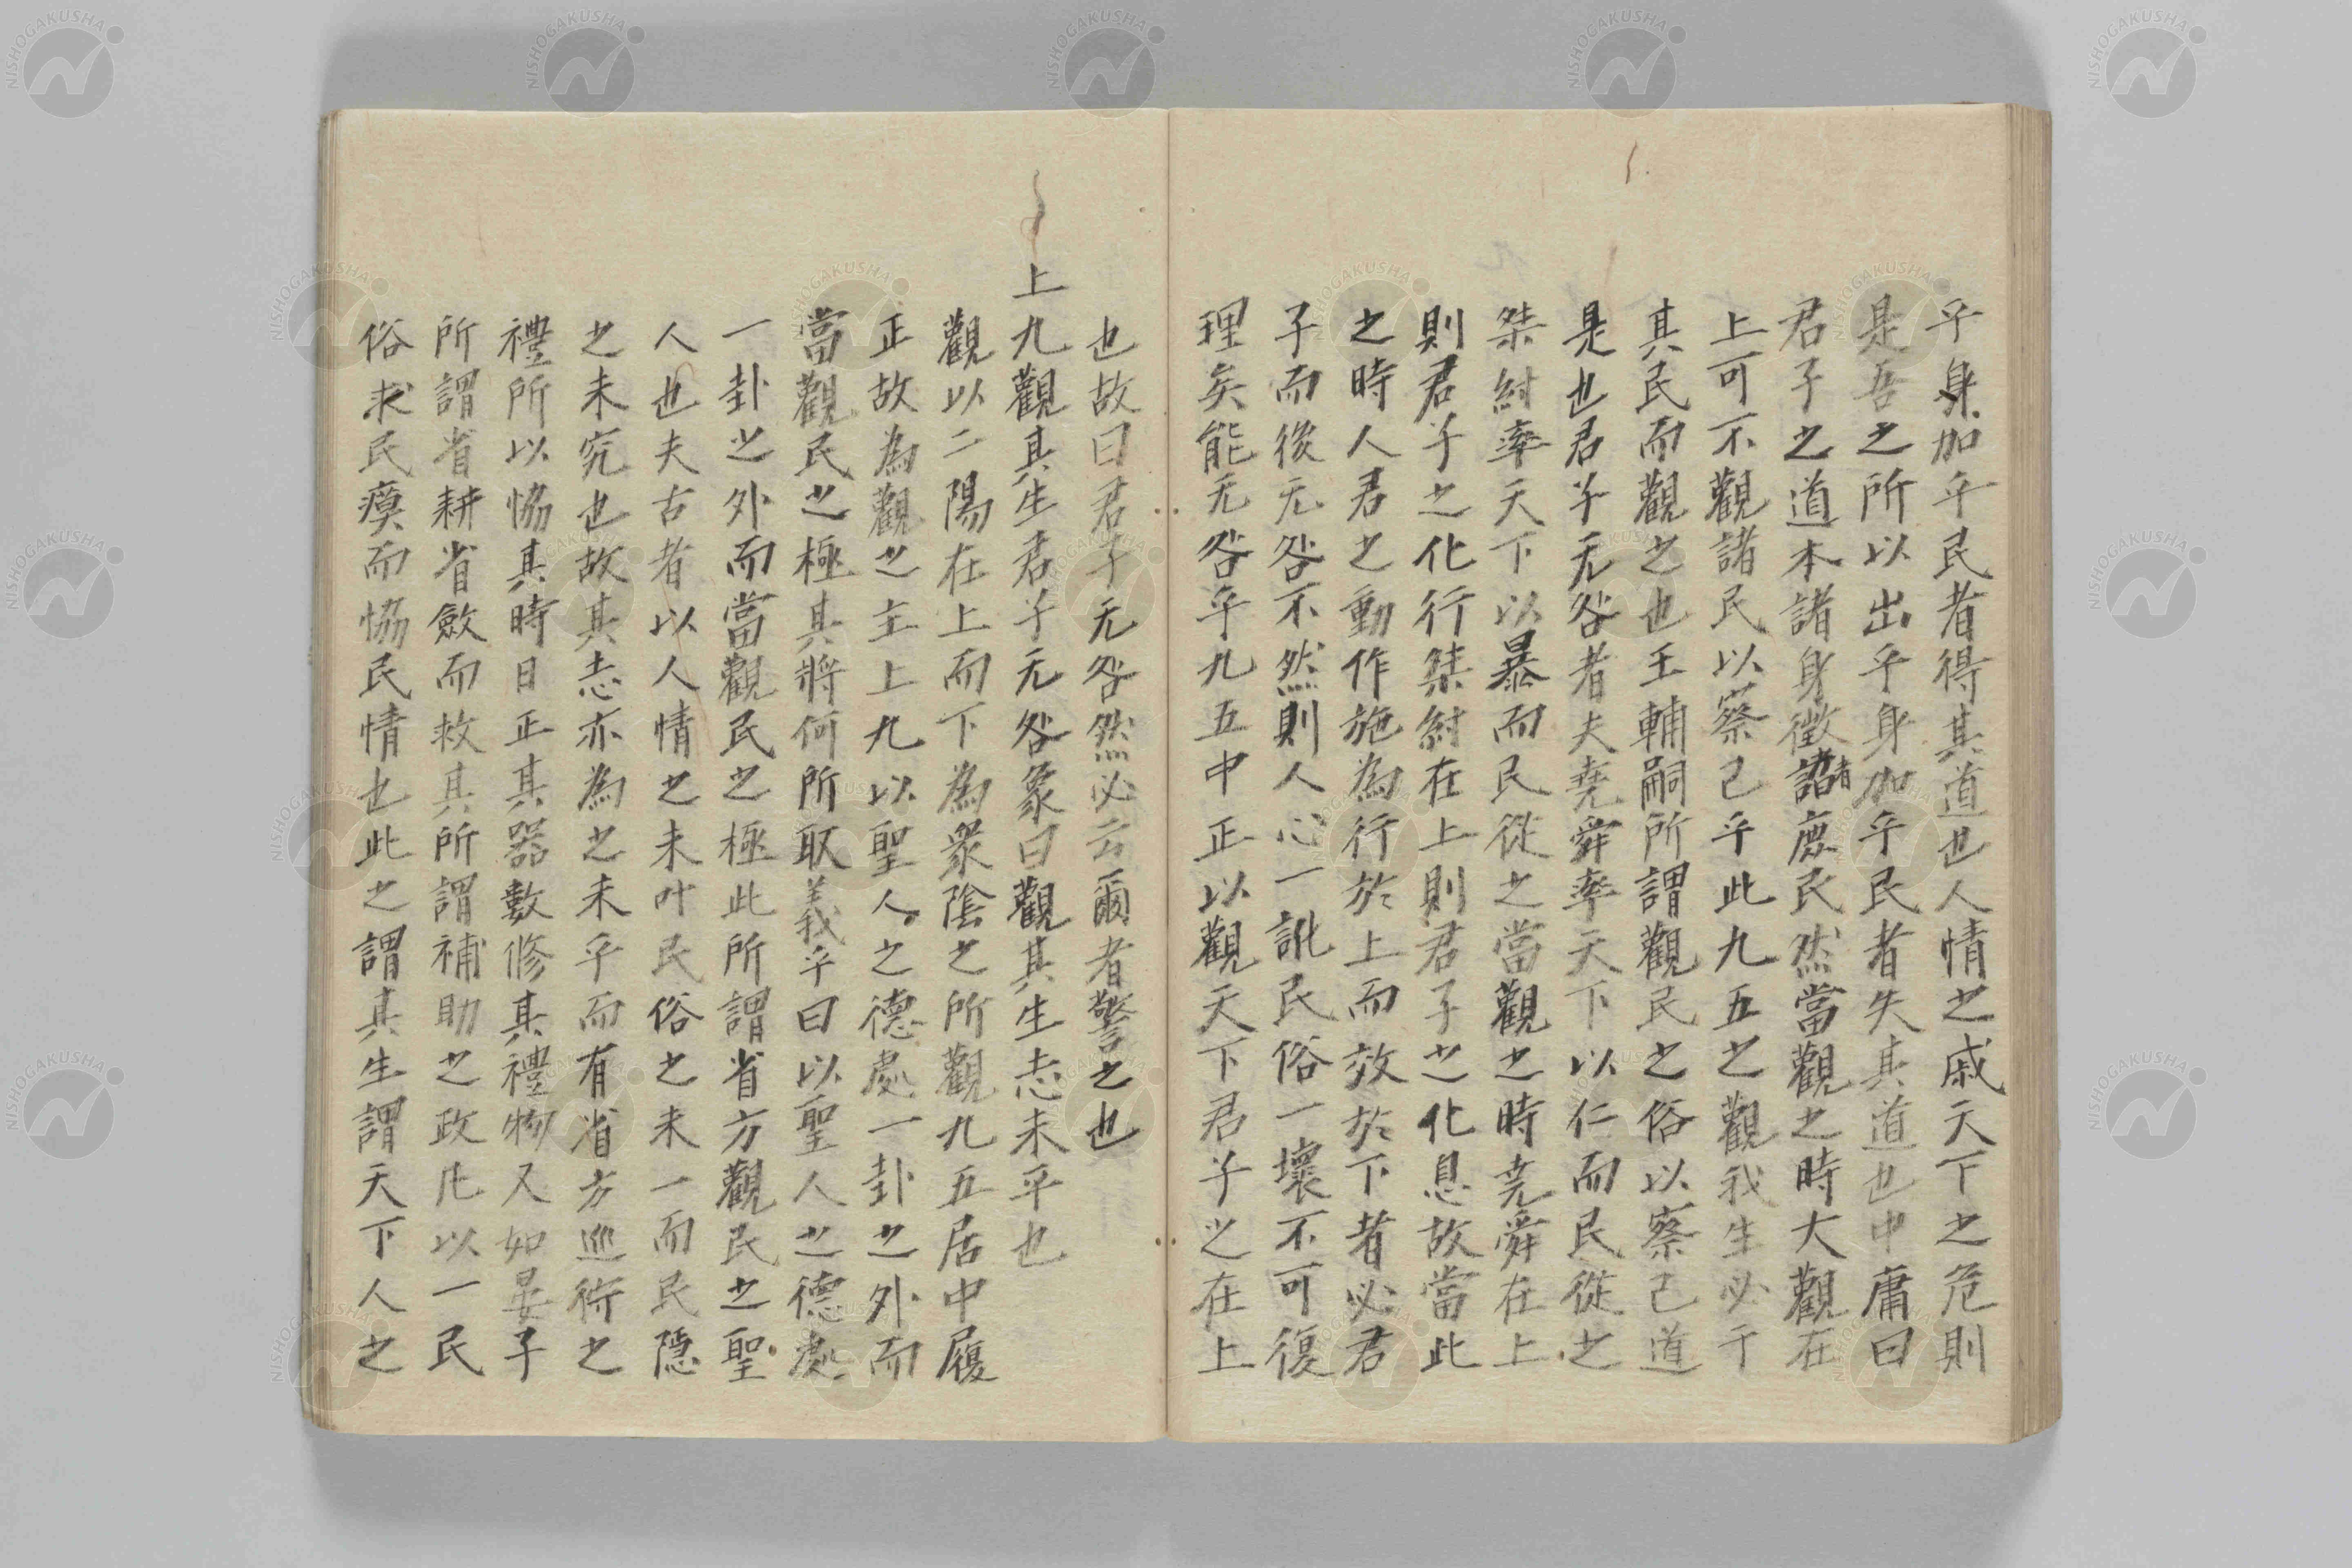 乎身加乎民者得其道也人情之戚天下之危則
是吾之所以出乎身加乎民者失其道也中庸曰
君子之道本諸身徵諸庶民然當觀之時大觀在
上可不觀諸民以察己乎此九五之觀我生必于
其民而觀之也王輔嗣所謂觀民之俗以察己道
是也君子无咎者夫堯舜率天下以仁而民從之
桀紂率天下以暴而民從之當觀之時堯舜在上
則君子之化行桀紂在上則君子之化息故當此
之時人君之動作施為行於上而效於下者必君
子而後无咎不然則人心一訛民俗一壞不可復
理矣能无咎乎九五中正以觀天下君子之在上
也故曰君子无咎然必云爾者警之也
上九觀其生君子无咎象曰觀其生志未平也
觀以二陽在上而下為衆陰之所觀九五居中履
正故為觀之主上九以聖人之德處一卦之外而
當觀民之極其將何所取義乎曰以聖人之德處
一卦之外而當觀民之極此所謂省方觀民之聖
人也夫古者以人情之未叶民俗之未一而民隱
之未究也故其志亦為之未平而有省方巡狩之
禮所以恊其時日正其器數修其禮物又如晏子
所謂省耕省斂而救其所謂補助之政凡以一民
俗求民瘼而恊民情也此之謂其生謂天下人之
NISHOGAKUSHA